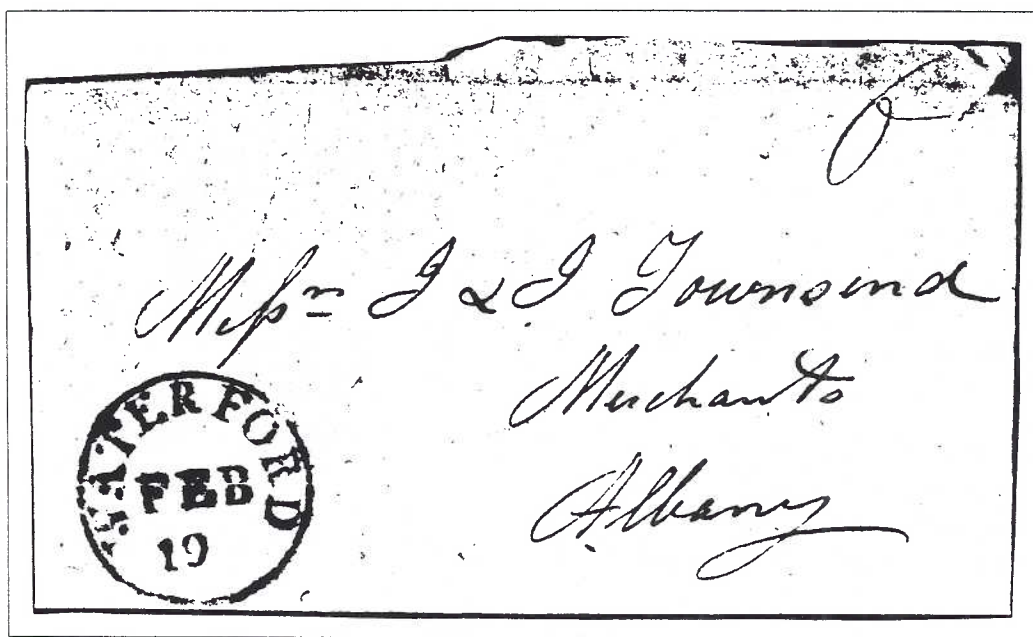 Messrs J & J Townsend
Merchants
Albany
WATERFORD
FEB
19